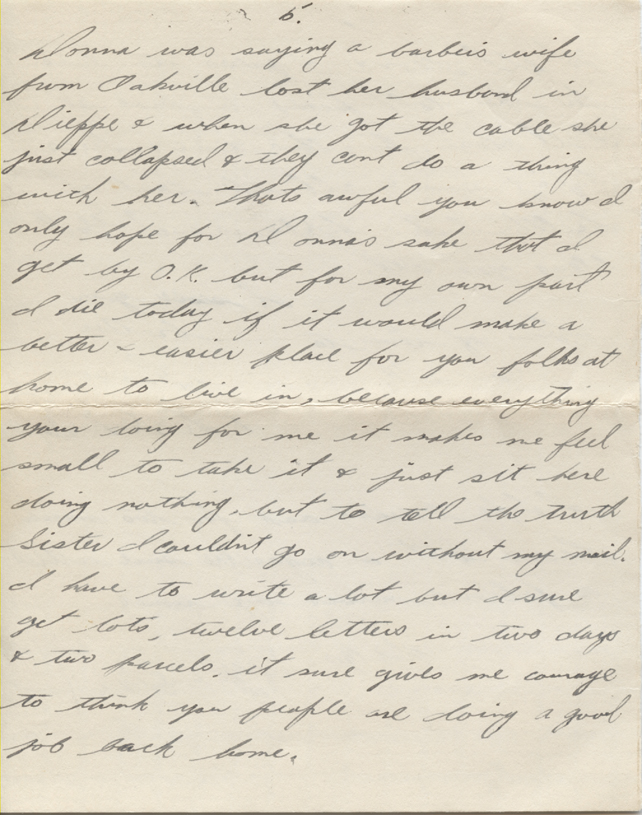 5.
Donna was saying a barbers wife
from Oakville lost her husband in
Dieppe & when she got the cable she
just collapsed & they cant do a thing
with her. Thats awful you know I
only hope for Donna's sake that I
get by O.K. but for my own part
I die today if it would make a
better & easier place for you folks at
home to live in, because everything
your doing for me it makes me feel
small to take it & just sit here
doing nothing, but to tell the truth
Sister I couldn't go on without my mail.
I have to write a lot but I sure
get lots, twelve letters in two days
& two parcels. it sure gives me courage
to think you people are doing a good
job back home.